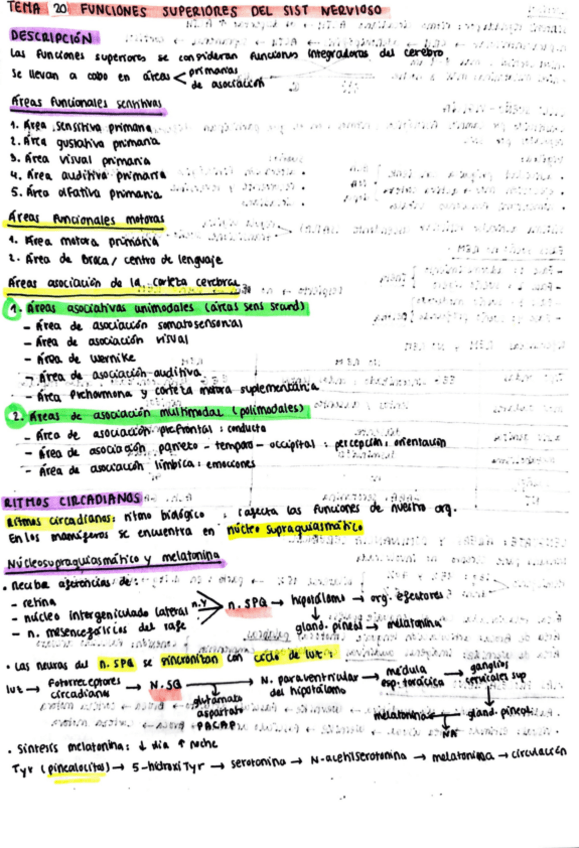 TEMA 20 FUNCIONES SUPERIORES DEL SIST NERVIOSO
DESCRIPCIÓN
Las funciones superiores se consideran funciones integradoras del cerebro
Se llevan a cabo en áreas < primarias
de asociación
Áreas funcionales sensitivas
1. Área sensitiva primaria
2. Área gustativa primaria
3. Área visual primaria
4. Área auditiva primaria
5. Área olfativa primaria
Áreas funcionales motoras
1. Área motora primaria
2. Área de Broca / centro de lenguaje
Áreas asociación de la corteza cerebral
1. Áreas asociativas unimodales (áreas sens scund)
- Área de asociación somatosensorial
- Área de asociación visual
- Área de Wernike
- Área de asociación auditiva
- Área Prehomona y corteza motora suplementaria
2. Áreas de asociación multimodal (polimodales)
- Área de asociación prefrontal: conducta
- Área de asociación parieto - temporo - occipital: percepción, orientación
- Área de asociación límbica: emociones
RITMOS CIRCADIANOS
Ritmos circadianos: ritmo biológico: (afecta las funciones de nuestro org.
En los mamíferos se encuentra en núcleo supraquiasmático
Núcleo supraquiasmático y melatonina
• Recibe aferencias de:
- retina
- núcleo intergeniculado lateral n.y > n. SPQ → hipotálamo → org. efectores
- n. mesencefálicos del rafe
↓
gland. pineal → melatonina
• Las neuras del n. SPQ se sincronizan con ciclo de luz:
luz → fotorreceptores circadianos → N. SQ → N. paraventricular del hipotálamo → médula esp. torácica → ganglios cervicales sup
glutamato
aspartato
PACAP
melatonina ← gland. pineal
NA
• Síntesis melatonina: ↓ día ↑ noche
Tyr (pinealocitos) → 5-hidroxiTyr → serotonina → N-acetilserotonina → melatonina → circulación